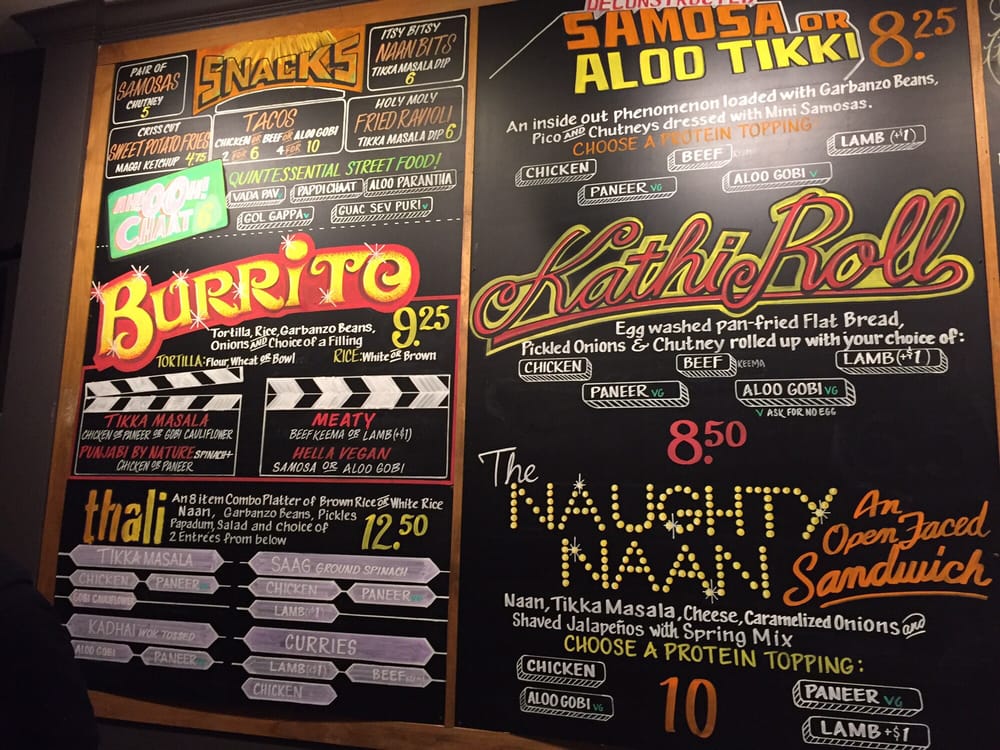 SNACKS
PAIR OF
SAMOSAS
CHUTNEY
5
ITSY BITSY
NAAN BITS
TIKKA MASALA DIP
6
CRISS CUT
SWEET POTATO FRIES
MAGGI KETCHUP 4.75
TACOS
CHICKEN OR BEEF OR ALOO GOBI
2 FOR 6 4 FOR 10
HOLY MOLY
FRIED RAVIOLI
TIKKA MASALA DIP 6
QUINTESSENTIAL STREET FOOD!
CHAAT 6
VADA PAV PAPDI CHAAT ALOO PARANTHA
GOL GAPPA V GUAC SEV PURI V
BURRITO
9.25
Tortilla, Rice, Garbanzo Beans,
Onions AND Choice of a Filling
TORTILLA: Flour, Wheat OR Bowl RICE: White OR Brown
TIKKA MASALA
CHICKEN OR PANEER OR GOBI CAULIFLOWER
PUNJABI BY NATURE SPINACH+
CHICKEN OR PANEER
MEATY
BEEF KEEMA OR LAMB (+$1)
HELLA VEGAN
SAMOSA OR ALOO GOBI
thali
An 8 item Combo Platter of Brown Rice OR White Rice
Naan, Garbanzo Beans, Pickles
Papadum, Salad and Choice of
2 Entrées from below
12.50
TIKKA MASALA
CHICKEN PANEER
GOBI CAULIFLOWER
KADHAI WOK TOSSED
ALOO GOBI PANEER
SAAG GROUND SPINACH
CHICKEN PANEER
LAMB +$1
CURRIES
LAMB (+$1) BEEF
CHICKEN
DECONSTRUCTED
SAMOSA OR
ALOO TIKKI
8.25
An inside out phenomenon loaded with Garbanzo Beans,
Pico AND Chutneys dressed with Mini Samosas.
CHOOSE A PROTEIN TOPPING
CHICKEN BEEF LAMB (+$1)
PANEER VG ALOO GOBI V
Kathi Roll
Egg washed pan-fried Flat Bread,
Pickled Onions & Chutney rolled up with your choice of:
CHICKEN BEEF KEEMA LAMB (+$1)
PANEER VG ALOO GOBI VG
V ASK FOR NO EGG
8.50
The
NAUGHTY
NAAN
An
Open Faced
Sandwich
Naan, Tikka Masala, Cheese, Caramelized Onions and
Shaved Jalapeños with Spring Mix
CHOOSE A PROTEIN TOPPING:
CHICKEN
ALOO GOBI VG
10
PANEER VG
LAMB +$1